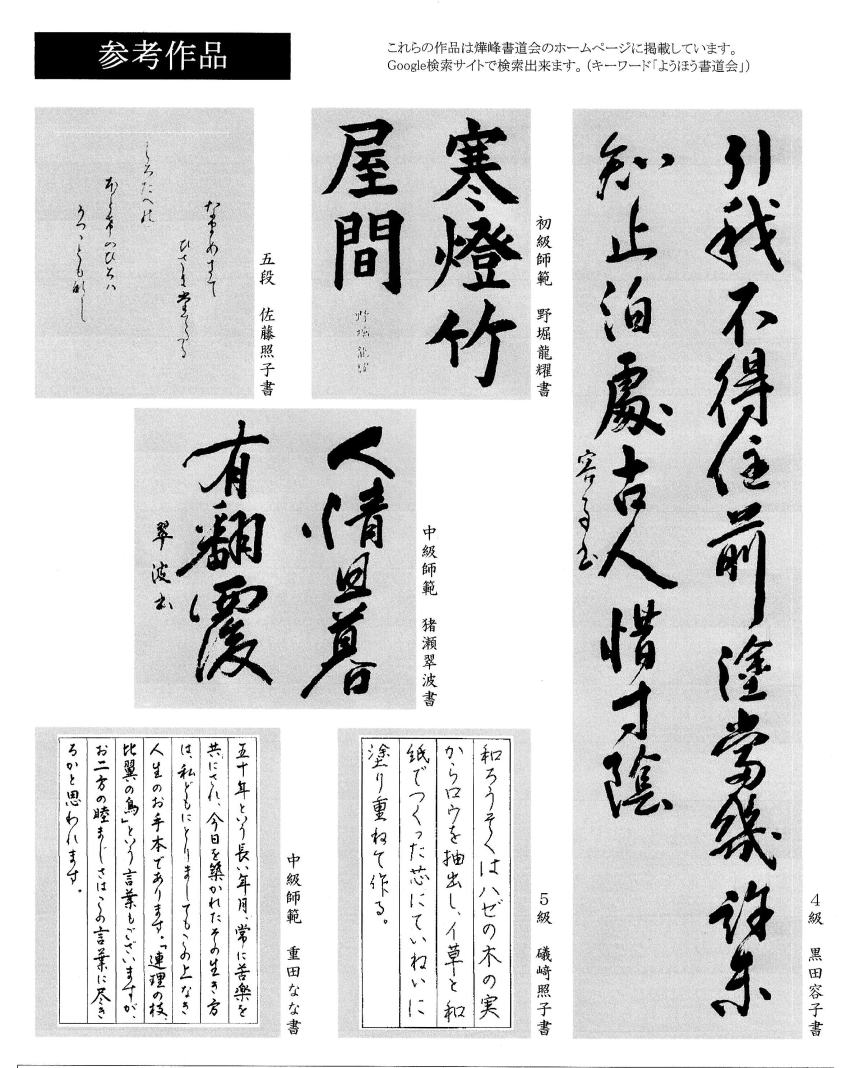 参考作品
これらの作品は燁峰書道会のホームページに掲載しています。
Google検索サイトで検索出来ます。（キーワード「ようほう書道会」）
引我不得住前塗當幾許未
知止泊處古人惜寸陰
容子書
４級　黒田容子書
寒燈竹
屋間
初級師範　野堀龍耀書
ひさ
しろたへの
五段　佐藤照子書
人情旦暮
有翻覆
翠波書
中級師範　猪瀬翠波書
和ろうそくはハゼの木の実
からロウを抽出し、イ草と和
紙でつくった芯にていねいに
塗り重ねて作る。
５級　礒﨑照子書
五十年という長い年月、常に苦楽を
共にされ、今日を築かれたその生き方
は、私どもにとりましてもこの上なき
人生のお手本であります。「連理の枝、
比翼の鳥」という言葉もございますが、
お二方の睦まじさはこの言葉に尽き
るかと思われます。
中級師範　重田なな書